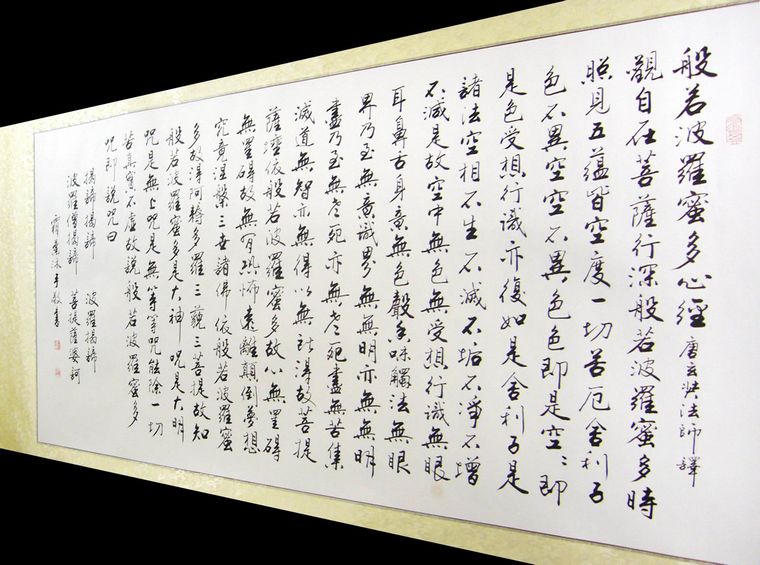 般若波羅蜜多心經 唐玄奘法師譯
觀自在菩薩行深般若波羅蜜多時
照見五蘊皆空度一切苦厄舍利子
色不異空空不異色色即是空〻即
是色受想行識亦復如是舍利子是
諸法空相不生不滅不垢不淨不增
不減是故空中無色無受想行識無眼
耳鼻舌身意無色聲香味觸法無眼
界乃至無意識界無無明亦無無明
盡乃至無老死亦無老死盡無苦集
滅道無智亦無得以無所得故菩提
薩埵依般若波羅蜜多故心無罣礙
無罣礙故無有恐怖遠離顛倒夢想
究竟涅槃三世諸佛依般若波羅蜜
多故得阿耨多羅三藐三菩提故知
般若波羅蜜多是大神咒是大明
咒是無上咒是無等等咒能除一切
苦真實不虛故說般若波羅蜜多
咒即說咒曰
揭諦揭諦 波羅揭諦
波羅僧揭諦 菩提薩婆訶
敬書